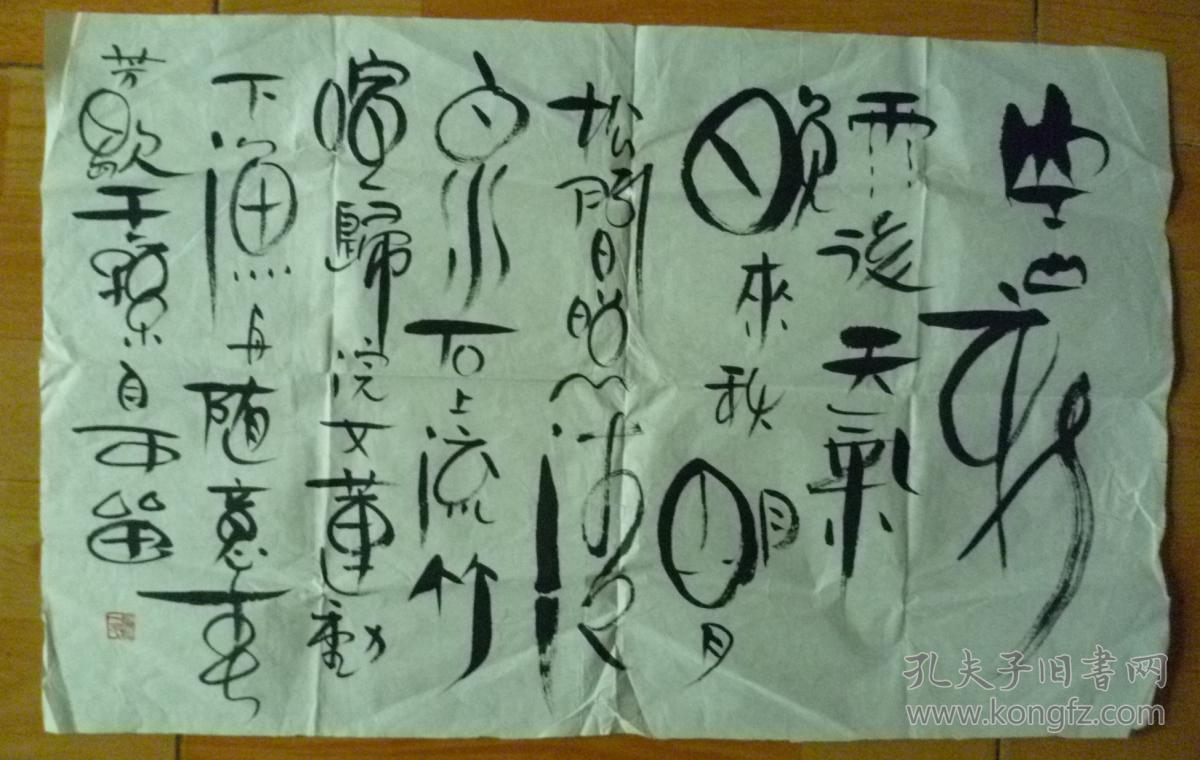 空山新
雨後天氣
晚來秋明月
松間照清
泉石上流竹
喧歸浣女蓮動
下漁舟隨意春
芳歇王孫自可留
孔夫子旧書网
www.kongfz.com